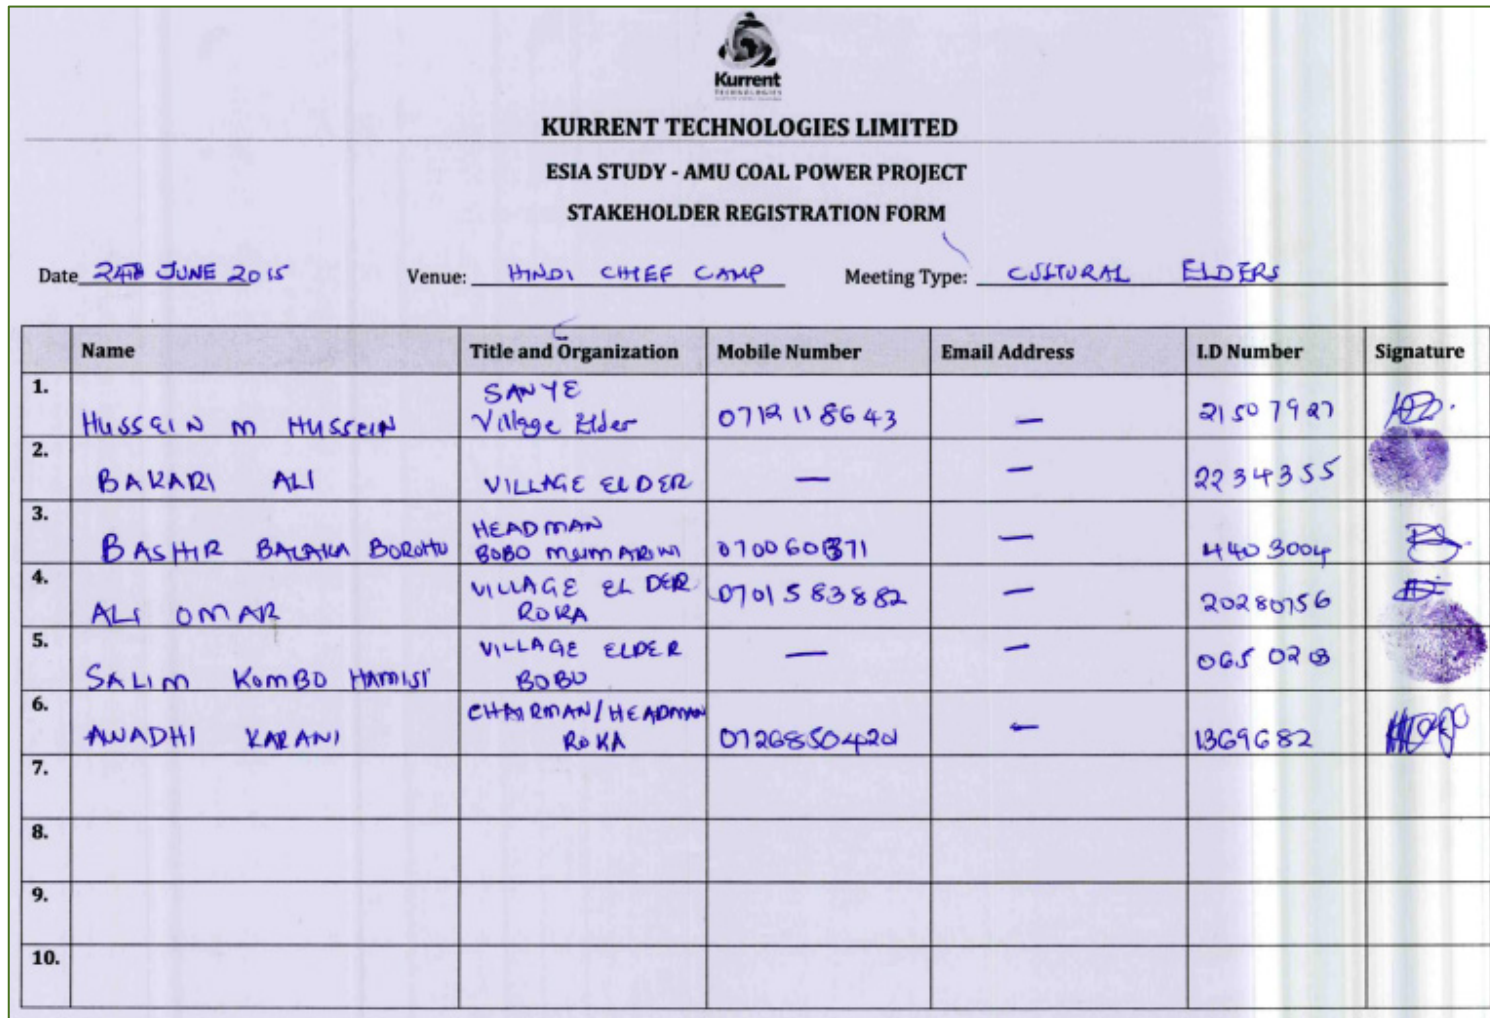 Kurrent
TECHNOLOGIES
KURRENT TECHNOLOGIES LIMITED
ESIA STUDY - AMU COAL POWER PROJECT
STAKEHOLDER REGISTRATION FORM
Date 24TH JUNE 2015 Venue: HINDI CHIEF CAMP Meeting Type: CULTURAL ELDERS
Name Title and Organization Mobile Number Email Address I.D Number Signature
1. HUSSEIN M HUSSEIN SANYE Village Elder 0712118643 — 21507927
2. BAKARI ALI VILLAGE ELDER — — 2234355
3. BASHIR BALAKA HEADMAN BOBO — 4403004
4. ALI OMAR VILLAGE ELDER ROKA 0701583882 — 20280756
5. SALIM KOMBO HAMISI VILLAGE ELDER BOBO — —
6. AWADHI KARANI CHAIRMAN/HEADMAN ROKA — 1369682
7.
8.
9.
10.